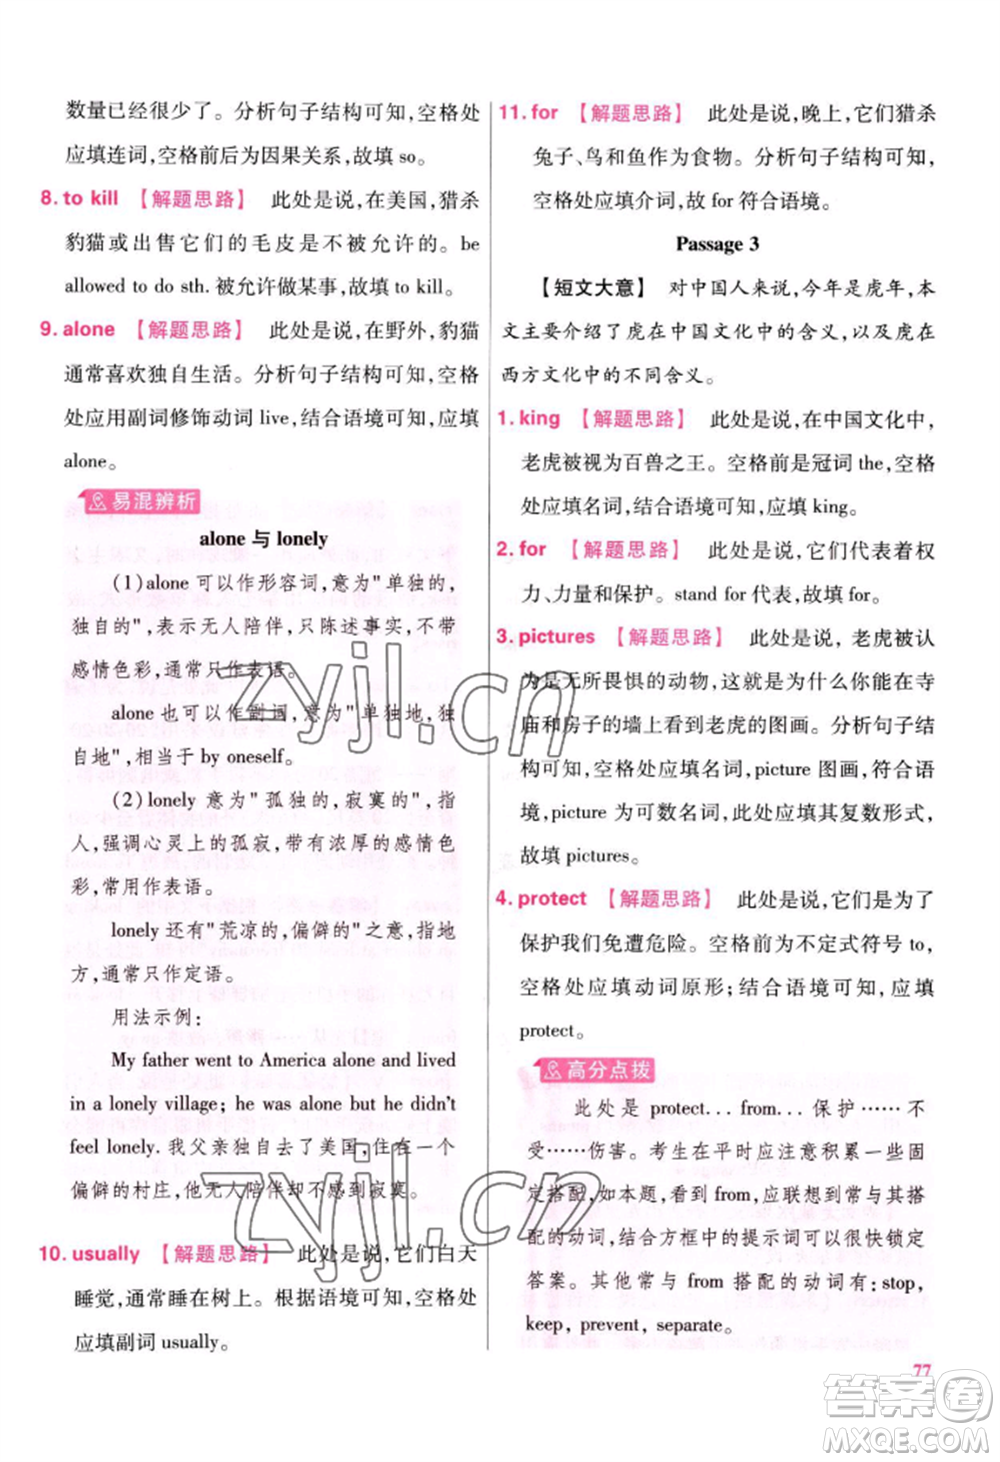 数量已经很少了。分析句子结构可知,空格处
应填连词,空格前后为因果关系,故填 so。
8. to kill 【解题思路】 此处是说,在美国,猎杀
豹猫或出售它们的毛皮是不被允许的。be
allowed to do sth. 被允许做某事,故填 to kill。
9. alone 【解题思路】 此处是说,在野外,豹猫
通常喜欢独自生活。分析句子结构可知,空格
处应用副词修饰动词 live,结合语境可知,应填
alone。
易混辨析
alone 与 lonely
(1)alone 可以作形容词,意为"单独的,
独自的",表示无人陪伴,只陈述事实,不带
感情色彩,通常只作表语。
alone 也可以作副词,意为"单独地,独
自地",相当于 by oneself。
(2)lonely 意为"孤独的,寂寞的",指
人,强调心灵上的孤寂,带有浓厚的感情色
彩,常用作表语。
lonely 还有"荒凉的,偏僻的"之意,指地
方,通常只作定语。
用法示例:
My father went to America alone and lived
in a lonely village; he was alone but he didn't
feel lonely. 我父亲独自去了美国,住在一个
偏僻的村庄,他无人陪伴却不感到寂寞。
10. usually 【解题思路】 此处是说,它们白天
睡觉,通常睡在树上。根据语境可知,空格处
应填副词 usually。
11. for 【解题思路】 此处是说,晚上,它们猎杀
兔子、鸟和鱼作为食物。分析句子结构可知,
空格处应填介词,故 for 符合语境。
Passage 3
【短文大意】 对中国人来说,今年是虎年,本
文主要介绍了虎在中国文化中的含义,以及虎在
西方文化中的不同含义。
1. king 【解题思路】 此处是说,在中国文化中,
老虎被视为百兽之王。空格前是冠词 the,空格
处应填名词,结合语境可知,应填 king。
2. for 【解题思路】 此处是说,它们代表着权
力、力量和保护。stand for 代表,故填 for。
3. pictures 【解题思路】 此处是说,老虎被认
为是无所畏惧的动物,这就是为什么你能在寺
庙和房子的墙上看到老虎的图画。分析句子结
构可知,空格处应填名词,picture 图画,符合语
境,picture 为可数名词,此处应填其复数形式,
故填 pictures。
4. protect 【解题思路】 此处是说,它们是为了
保护我们免遭危险。空格前为不定式符号 to,
空格处应填动词原形;结合语境可知,应填
protect。
高分点拨
此处是 protect... from... 保护……不
受……伤害。考生在平时应注意积累一些固
定搭配,如本题,看到 from,应联想到常与其搭
配的动词,结合方框中的提示词可以很快锁定
答案。其他常与 from 搭配的动词有:stop,
keep, prevent, separate。
77
zyjl.cn
zyjl.cn
答案圈
MXQE.COM